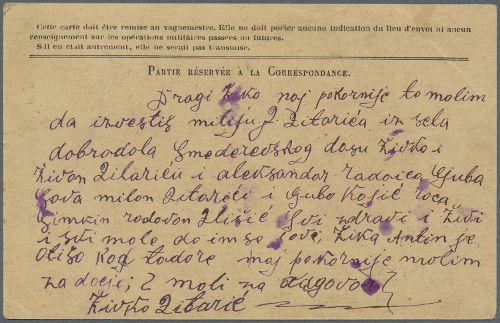 Cette carte doit être remise au vaguemestre. Elle ne doit porter aucune indication du lieu d'envoi ni aucun
renseignement sur les opérations militaires passées ou futures.
S'il en était autrement, elle ne serait pas transmise.
PARTIE RÉSERVÉE A LA CORRESPONDANCE.
Dragi Živko naj pokornije te molim
da izvestiš miliju J. Zitarića iz sela
dobrodola Smederevskog dasu Živko i
Živon Zitariću i aleksandar radoica Guba
Sava milon Zitareći i Gubo Kojić
Simkin rodovon Ilišić Svi zdravi i živi
i svi mole do im se jove, Žika Antin je
otišo Kog todore maj pokornije molim
za Z moli na odgovor
Živko Zitarić